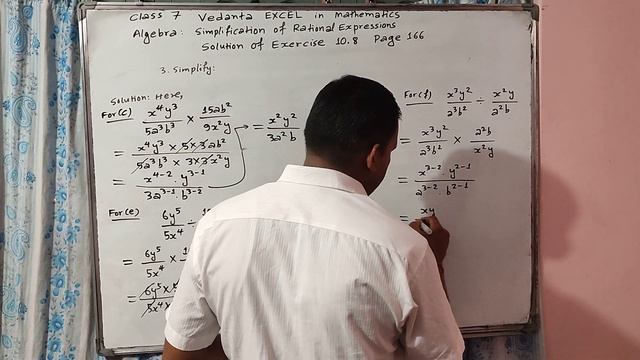 Class 7 Vedanta EXCEL in Mathematics
Algebra: Simplification of Rational Expressions
Solution of Exercise 10.8 Page 166
3. Simplify:
Solution: Here,
For(c) x⁴y³/5a³b³ × 15ab²/9x²y
= x⁴y³ × 5 × 3ab²/5a³b³ × 3 × 3x²y
= x⁴⁻² . y³⁻¹/3a³⁻¹ . b³⁻²
= x²y²/3a²b
For(e) 6y⁵/5x⁴ ÷
= 6y⁵/5x⁴ ×
= 6y⁵ ×/5x⁴ ×
For(f) x³y²/a³b² ÷ x²y/a²b
= x³y²/a³b² × a²b/x²y
= x³⁻² . y²⁻¹/a³⁻² . b²⁻¹
= xy